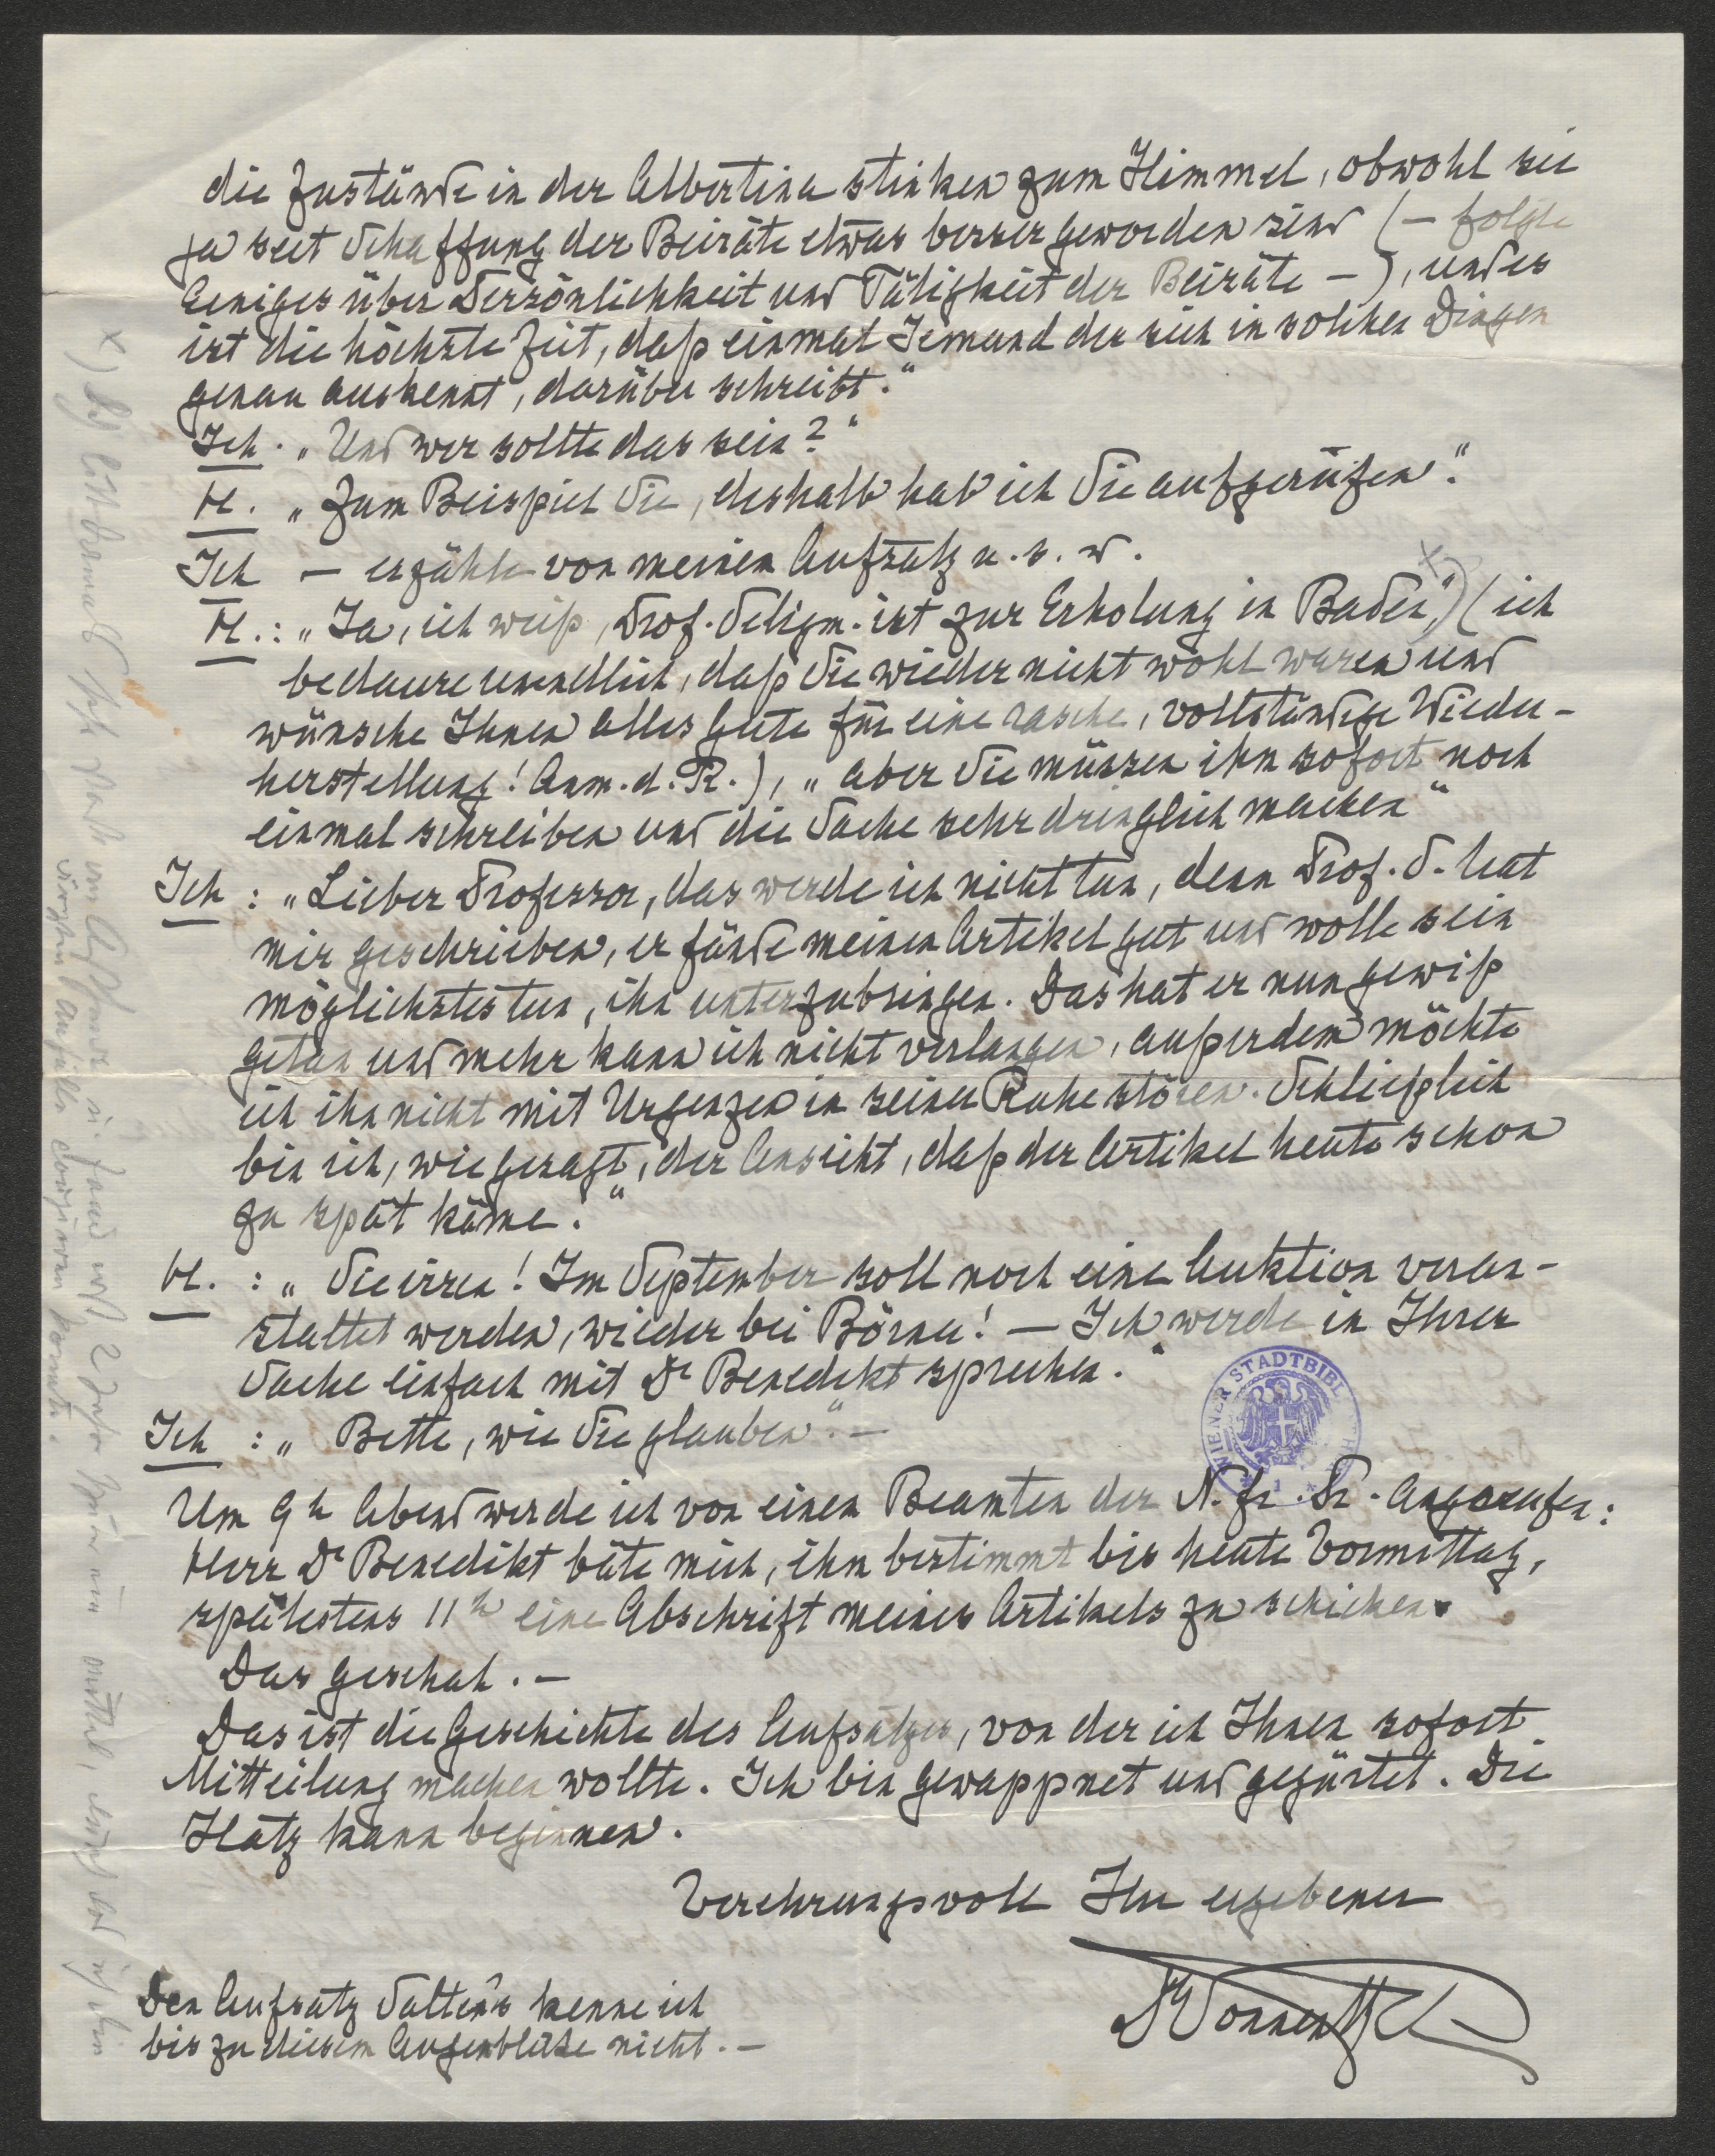 die Zustände in der Albertina stinken zum Himmel, obwohl sie
ja seit Schaffung der Beiräte etwas besser geworden sind (– folgte
Einiges über Persönlichkeit und Tätigkeit der Beiräte –), und es
ist die höchste Zeit, daß einmal Jemand der sich in solchen Dingen
genau auskennt, darüber schreibt."
Ich. „Und wer sollte das sein?"
H. „Zum Beispiel Sie, deshalb hab ich Sie aufgerufen."
Ich – erzähle von meinem Aufsatz u. s. w.
H.: „Ja, ich weiß, Prof. Seligm. ist zur Erholung in Baden," x) (ich
bedaure unendlich, daß Sie wieder nicht wohl waren und
wünsche Ihnen alles Gute für eine rasche, vollständige Wieder-
herstellung! Anm. d. R.), „aber Sie müssen ihm sofort noch
einmal schreiben und die Sache sehr dringlich machen"
Ich : „Lieber Professor, das werde ich nicht tun, denn Prof. S. hat
mir geschrieben, er fände meinen Artikel gut und wolle sein
möglichstes tun, ihn unterzubringen. Das hat er nun gewiß
getan und mehr kann ich nicht verlangen, außerdem möchte
ich ihn nicht mit Urgenzen in seiner Ruhe stören. Schließlich
bin ich, wie gesagt, der Ansicht, daß der Artikel heute schon
zu spät käme."
H. : „Sie irren! Im September soll noch eine Auktion veran-
staltet werden, wieder bei Börner! – Ich werde in Ihrer
Sache einfach mit Dr Benedikt sprechen."
Ich : „Bitte, wie Sie glauben". –
WIENER STADTBIBL
Um 9h Abend werde ich von einem Beamten der N. fr. Pr. angerufen:
Herr Dr Benedikt bäte mich, ihm bestimmt bis heute Vormittag,
spätestens 11h eine Abschrift meines Artikels zu schicken.
Das geschah. –
Das ist die Geschichte des Aufsatzes, von der ich Ihnen sofort
Mitteilung machen wollte. Ich bin gewappnet und gegürtet. Die
Hatz kann beginnen.
Verehrungsvoll Ihr ergebener
Den Aufsatz Salten's kenne ich
bis zu diesem Augenblicke nicht. –
x)